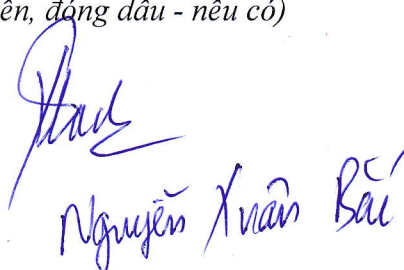 ên, đóng dấu - nếu có)
Nguyễn Xuân Bắc